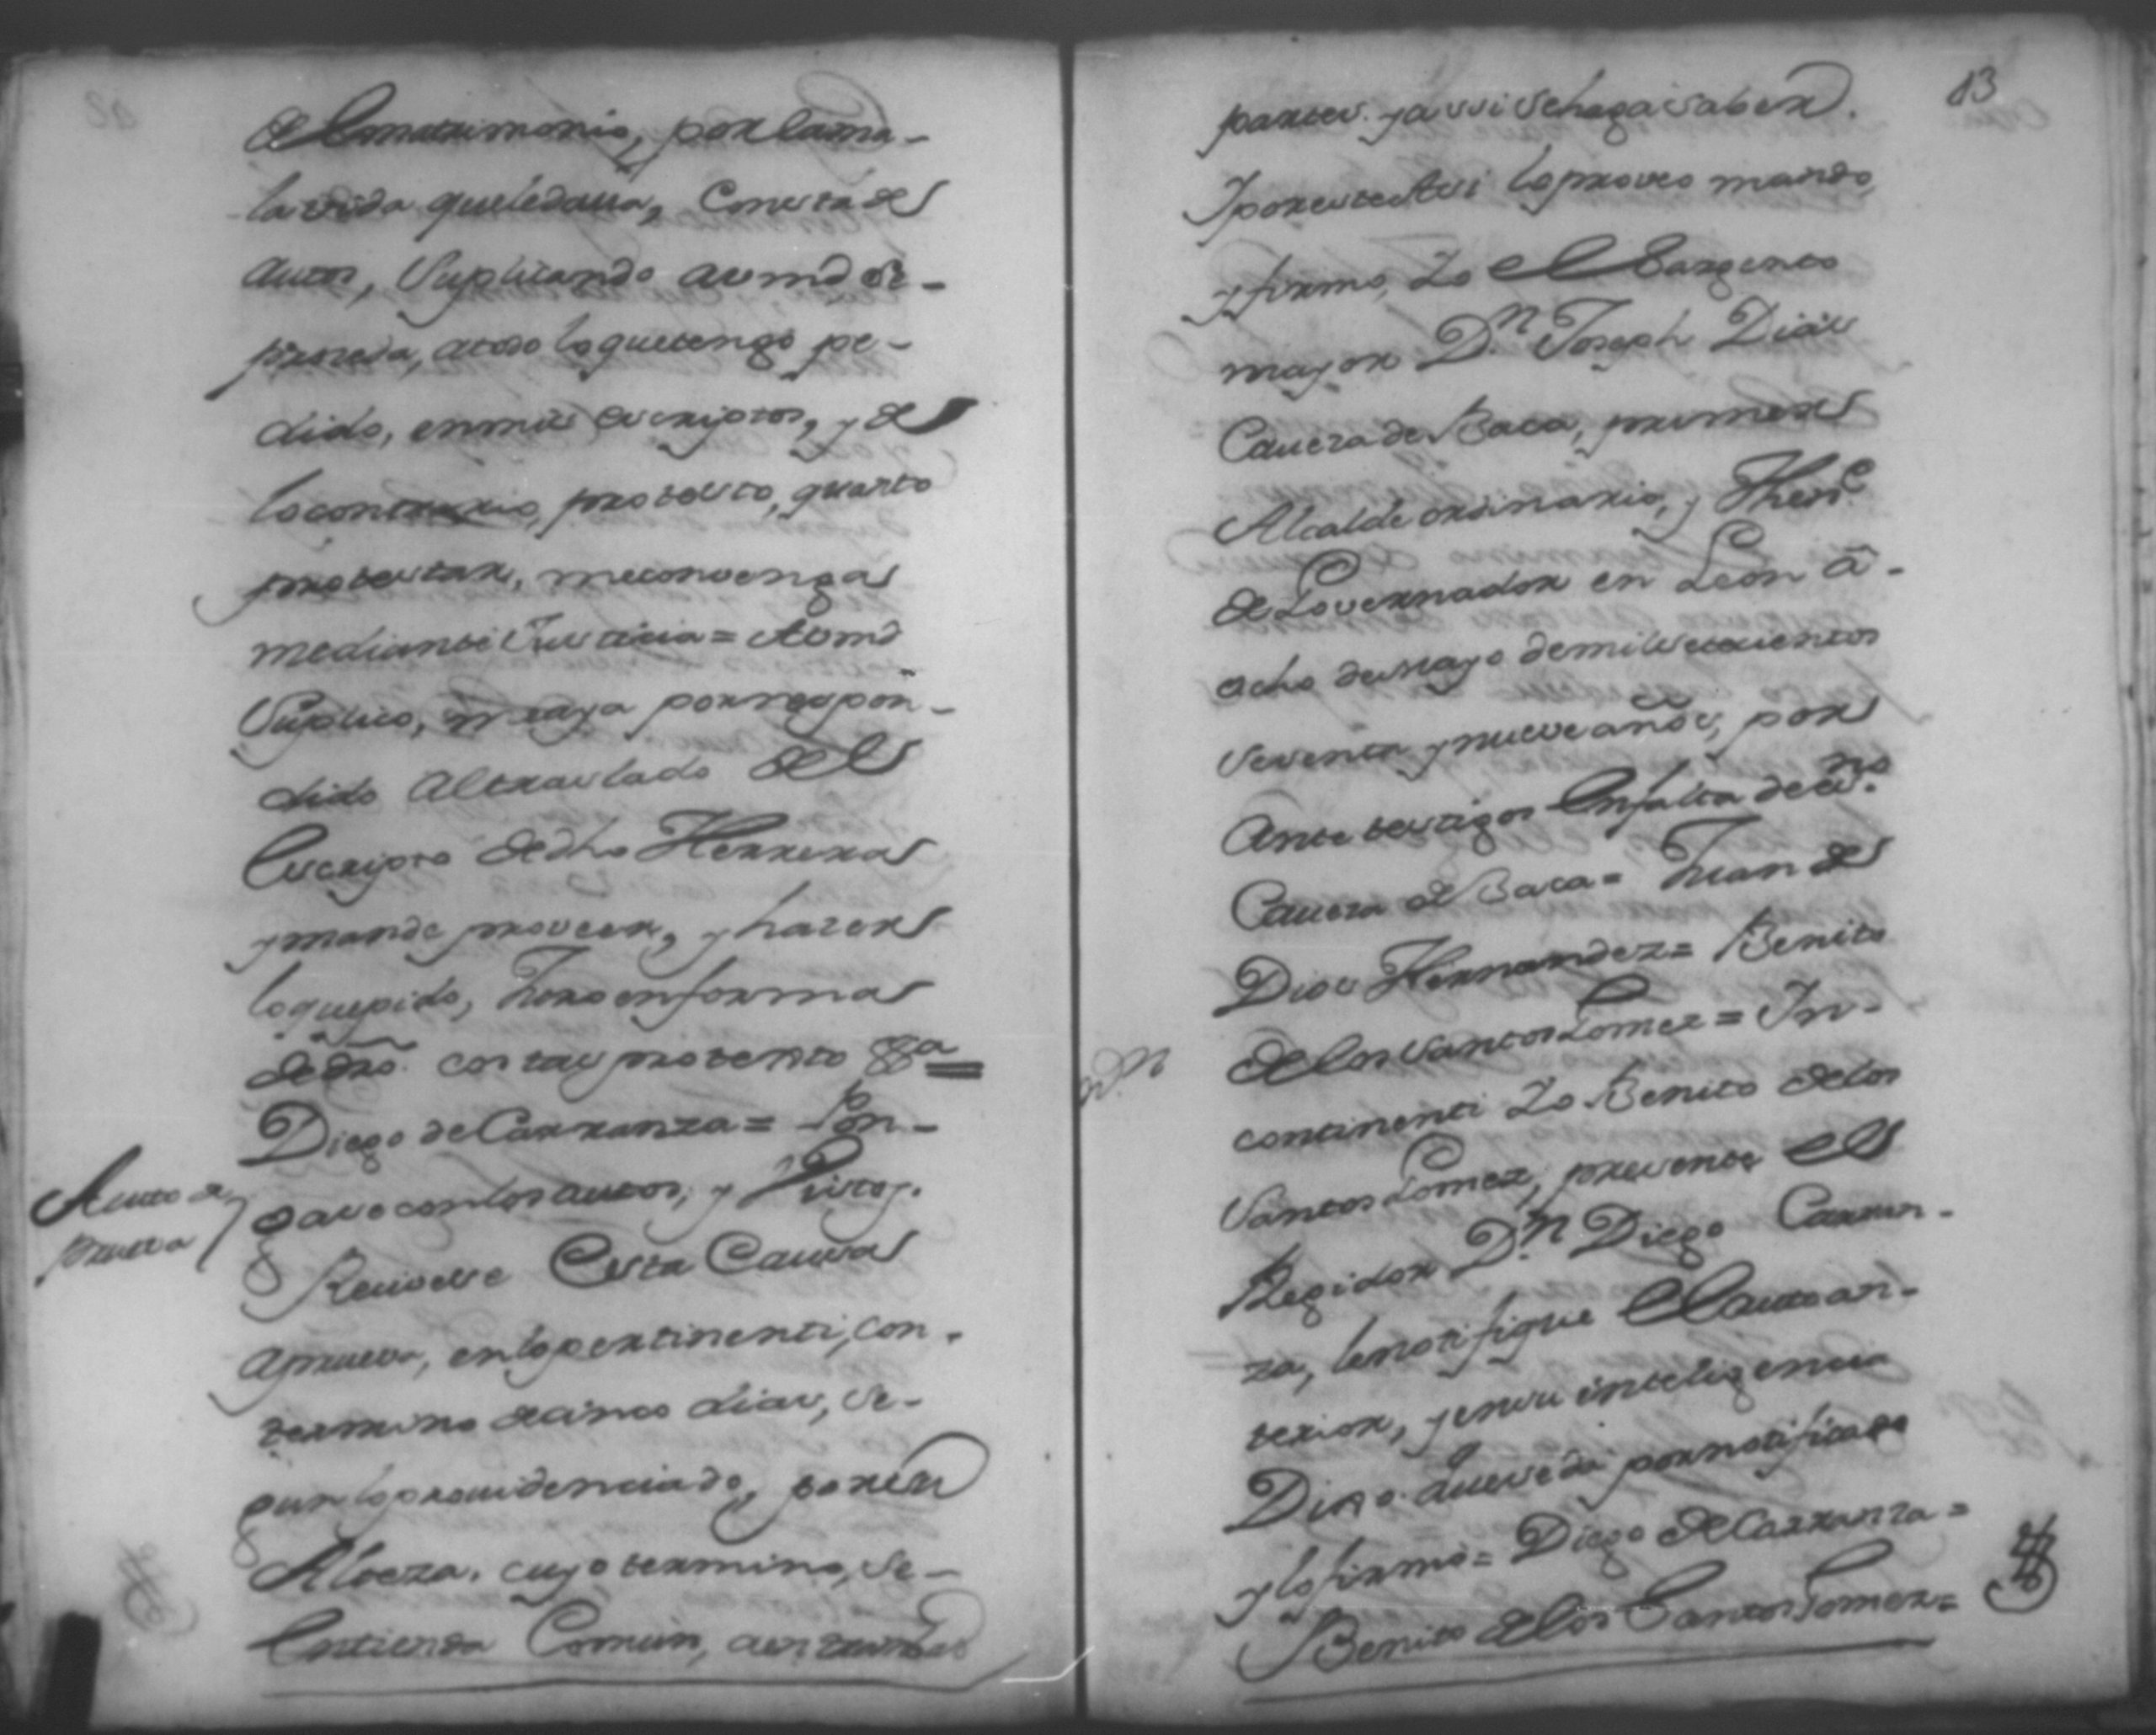 del matrimonio, por la ma-
la vida que le daua, Consta de
autos, Suplicando a vmd de-
prouea, a todo lo que tengo pe-
dido, en mis escriptos, y de
lo contrario, protesto, quanto
protestar, me convenga
mediante Justicia = A vmd
Suplico, me aya por respon-
dido al traslado del
Escripto de dho Herrera
y mande proveer, y hazer
lo que pido, Juro en forma
de dro. costas protesto &a =
Diego de Carranza = Pon-
Auto de
prueva
gase con los autos, y Vistos.
Reciuese Esta Causa
aprueva, en lo pertinenti, con
termino de cinco dias, se-
gun lo prouidenciado, por su
Alteza. cuyo termino, se-
Entienda Comun, a entrambas
83
partes. y assi se haga saber.
Y por este Assi lo proveo mando,
y firmo, Yo el Sargento
mayor Dn. Joseph Dias
Caueza de Baca, primer
Alcalde ordinario, y Thene.
de Governador en Leon â-
ocho de Mayo de mil setecientos
sesenta y nueve años, por
Ante testigos En falta de esno.
Caueza de Baca = Juan de
Dios Hernandez = Benito
de los Santos Gomez = In-
continenti Yo Benito de los
Santos Gomez, presente el
Regidor Dn. Diego Carran-
za, le notifique El auto an-
terior, y en su inteligencia
Dixo. que se da por notificado
y lo firmó = Diego de Carranza =
Benito de los Santos Gomez =